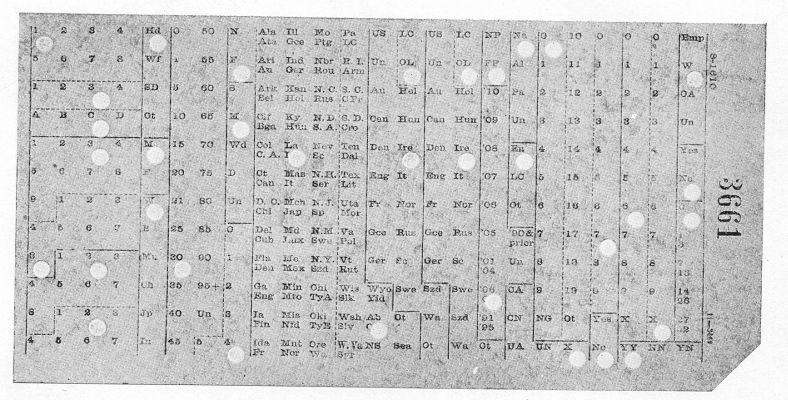 1 2 3 4 Hd 0 50 N Ala Ill Mo Pa US LC US LC NP Na 0 10 0 0 0 Emp
Ata Gce Ptg LC
5 6 7 8 Wf 1 55 F Ari Ind Nbr R.I. Un OL Un OL FP Al 1 11 1 1 W
Au Ger Rou Arm
1 2 3 4 SD 5 60 S Ark Kan N.C. S.C. Au Hol Au Hol 10 Pa 2 12 2 2 2 OA
Bel Hol Rus
A B C D Ot 10 65 M Clf Ky N.D. S.D. Hun Hun '09 Un 3 13 3 3 3 Un
Bga Hun S.A. Cro
1 2 3 4 M 15 70 Wd Col La Nev Ten Den Ire Den Ire '08 En 4 14 4 4 4 Yes
C.A. Sc Dal
5 6 7 8 F 20 75 D Ct Mas N.H. Tex Eng It Eng It '07 LC 5 15 5 5 5 No
Can It Ser Lit
1 2 3 W 21 80 Un D.C. Mch N.J. Uta Fr Nor Fr Nor '06 Ot 6 16 6 6
Chi Jap Sp Mor
4 5 6 7 B 25 85 0 Del Md N.M. Va Gce Rus Gce Rus '05 90& 7 17 7 7 7
Cub Lux Swe Pol prior
1 2 3 Mu 30 90 1 Fla Me N.Y. Vt Ger Sc Ger Sc 01 Un 8 8 8
Den Mex Szd Rut 04
4 5 6 7 Ch 35 95+ 2 Ga Min Ohi Wis Wyo Swe Szd Swe CA 9 19 9 9 14
Eng TyA Slk Yid
1 2 3 Jp 40 Un 3 Ia Mis Okl Wsh Ab Ot Wa Szd 91 CN NG Ot Yes X X
Fin Nfd TyE Slv 95
4 5 6 7 In 45 5 4 Ida Mnt Ore W.Va NS Sea Ot Wa Ot UA UN X No YY NN YN
Fr Nor Wa Syr
8-1610
3661